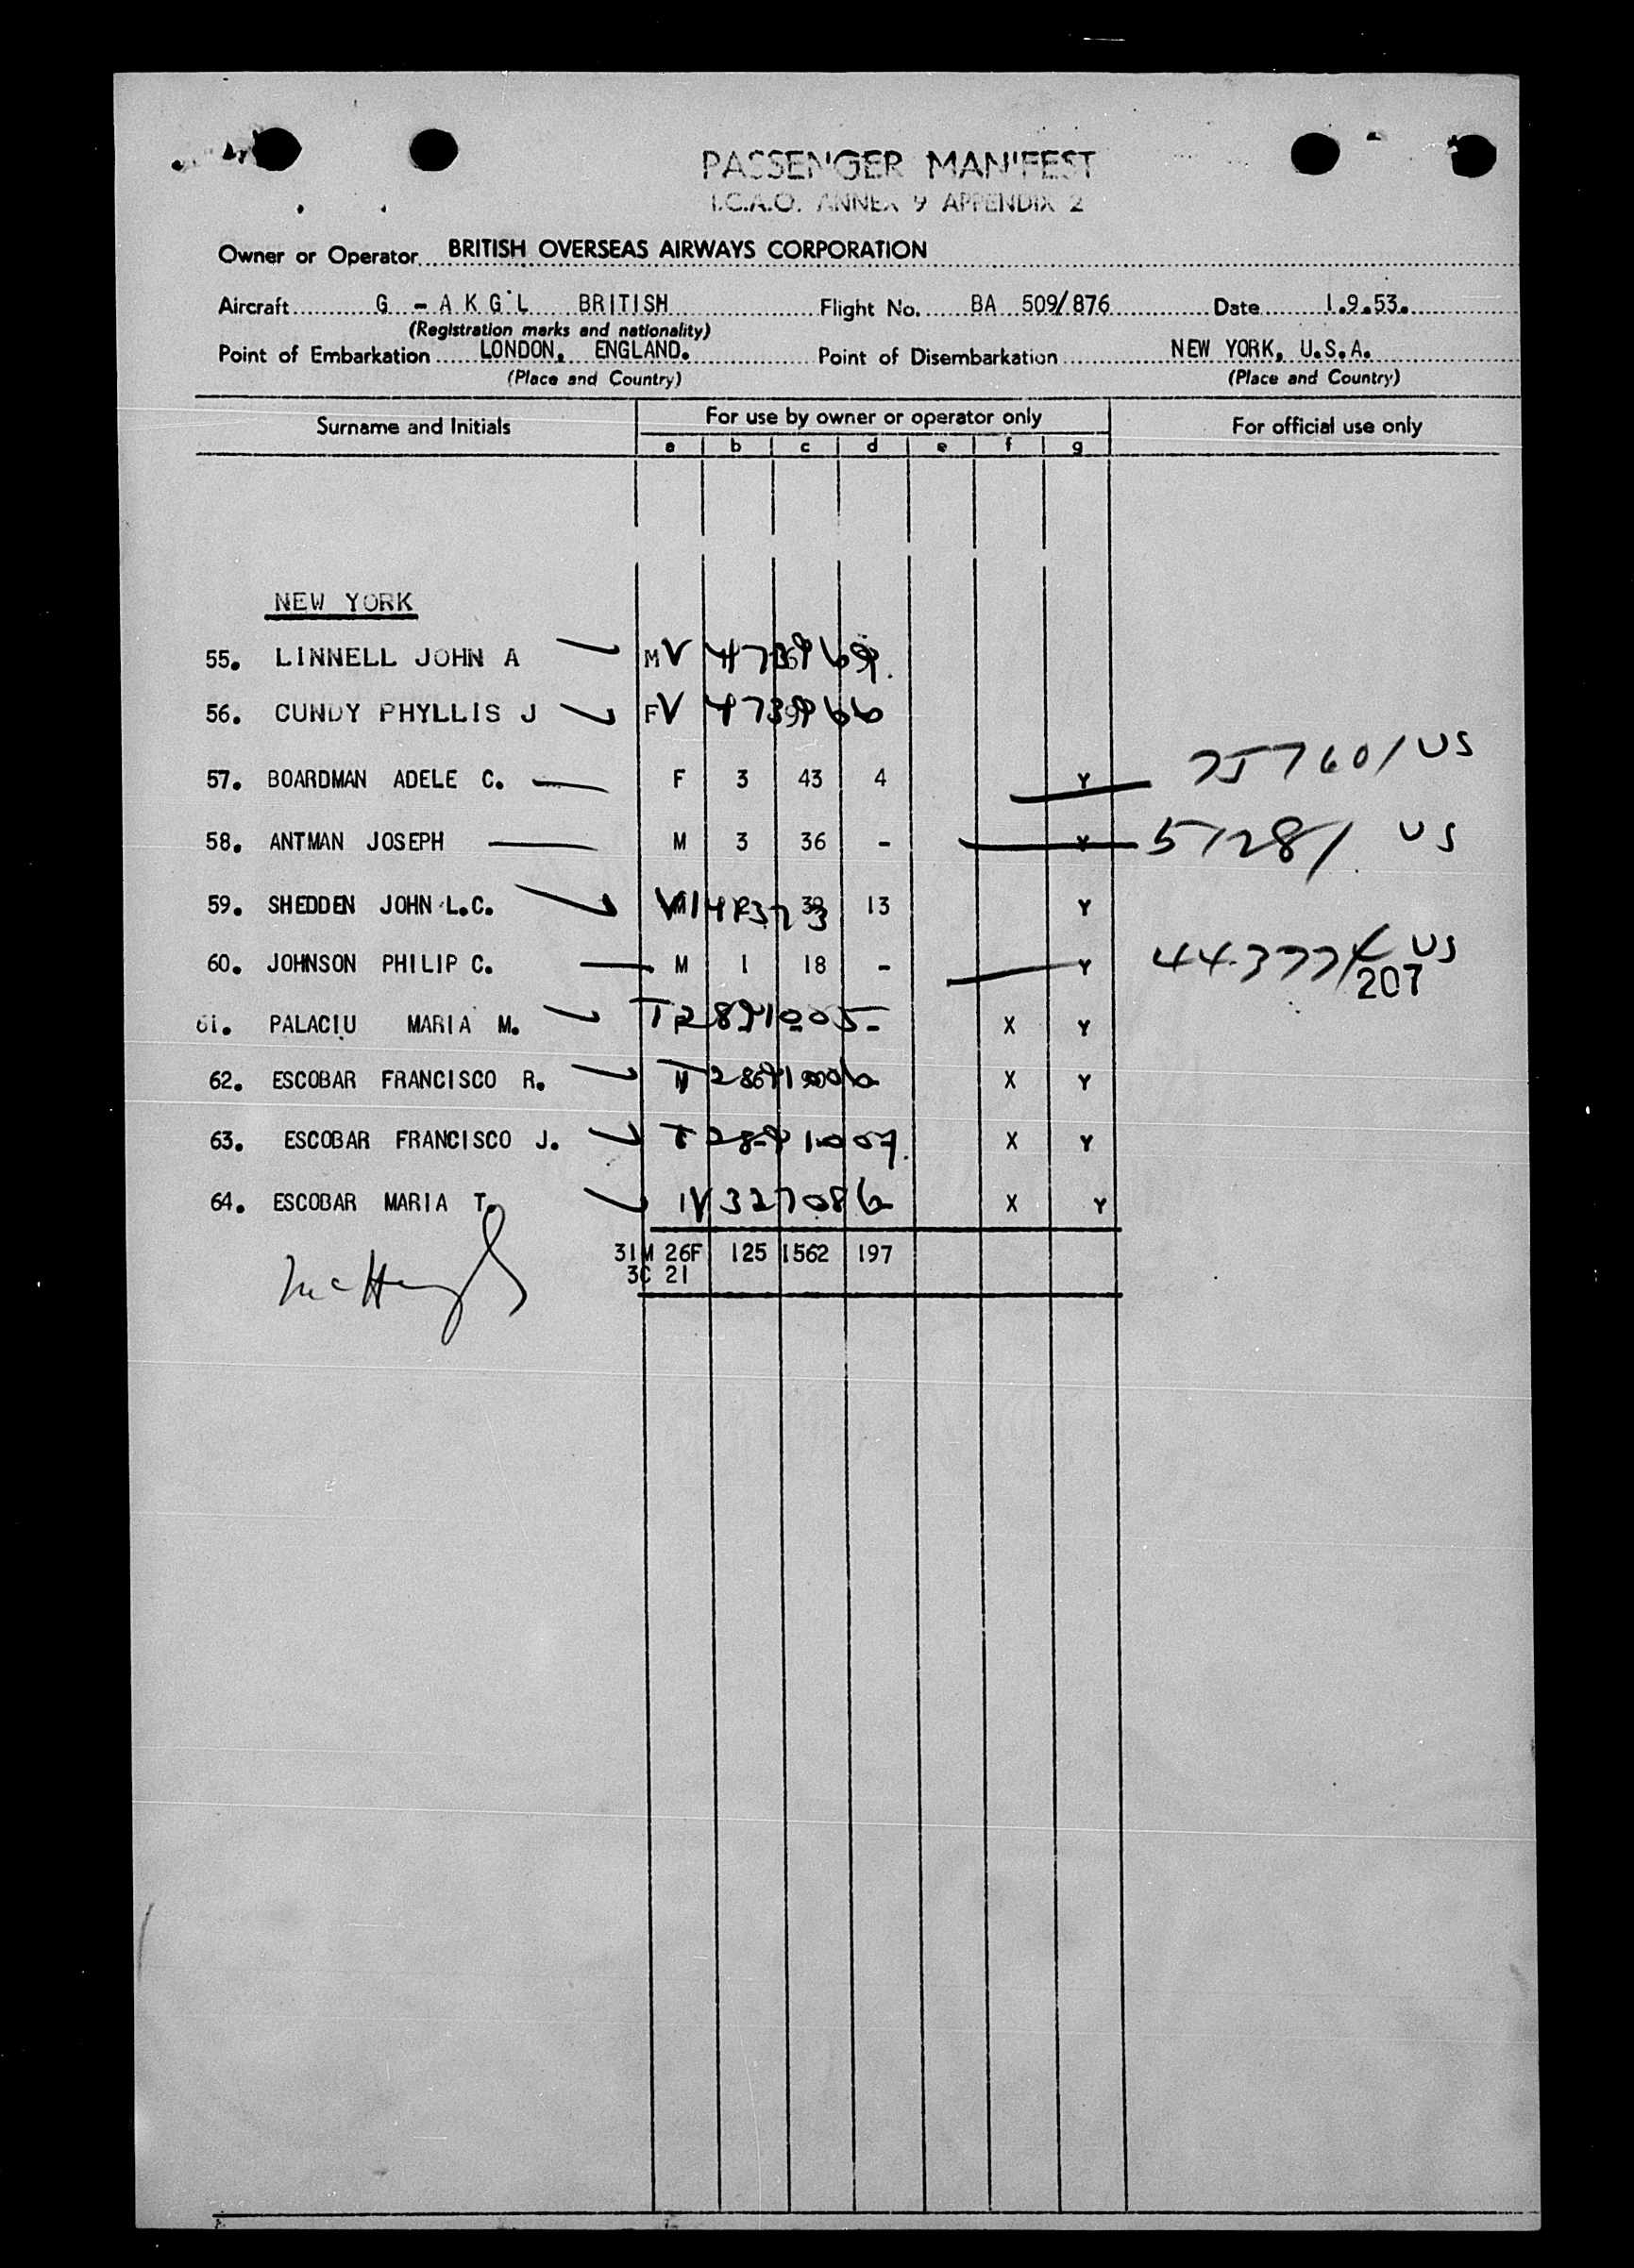 PASSENGER MANIFEST
I.C.A.O. ANNEX 9 APPENDIX 2
Owner or Operator BRITISH OVERSEAS AIRWAYS CORPORATION
Aircraft G - A K G L BRITISH Flight No. BA 509/876 Date 1.9.53.
(Registration marks and nationality)
Point of Embarkation LONDON, ENGLAND. Point of Disembarkation NEW YORK, U.S.A.
(Place and Country) (Place and Country)
Surname and Initials For use by owner or operator only For official use only
a b c d e f g
NEW YORK
55. LINNELL JOHN A M V
56. CUNDY PHYLLIS J F V
57. BOARDMAN ADELE C. F 3 43 4 Y 75760/ US
58. ANTMAN JOSEPH M 3 36 - Y 51281 US
59. SHEDDEN JOHN L.C. 13 Y
60. JOHNSON PHILIP C. M 1 18 - Y US
207
61. PALACIU MARIA M. X Y
62. ESCOBAR FRANCISCO R. X Y
63. ESCOBAR FRANCISCO J. X Y
64. ESCOBAR MARIA T. X Y
31M 26F 125 1562 197
3C 21